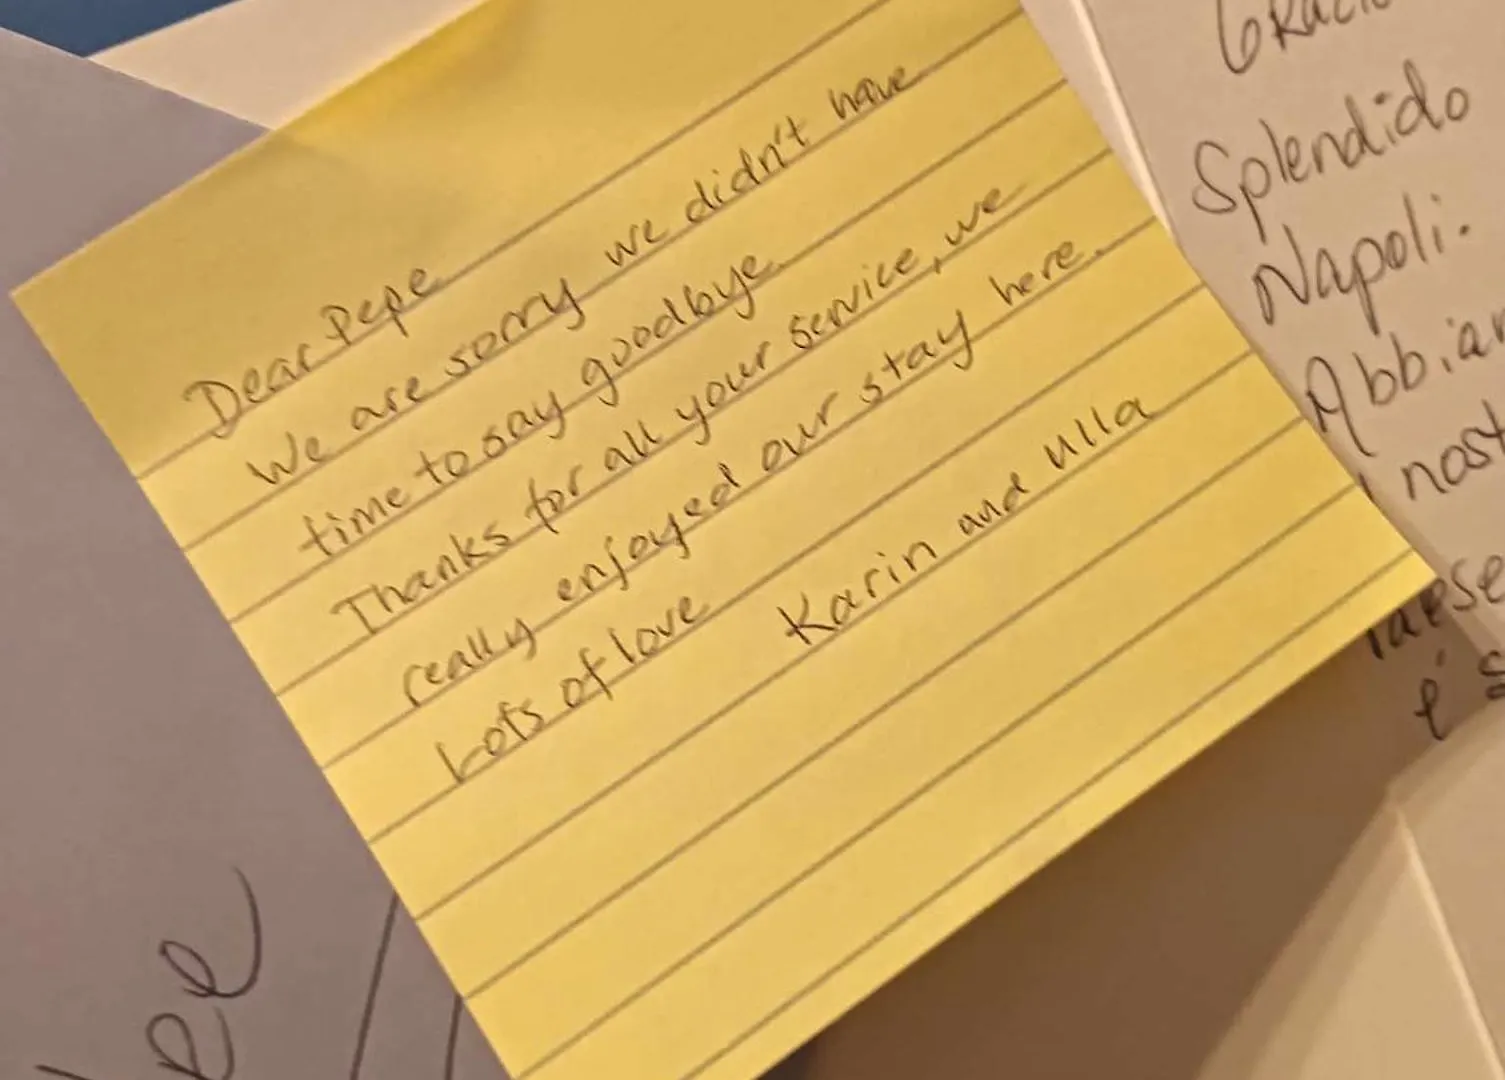 Dear Pepe
We are sorry we didn't have
time to say goodbye.
Thanks for all your service, we
really enjoyed our stay here.
Lots of love Karin and Ulla
Splendido
Napoli.
nost
é s